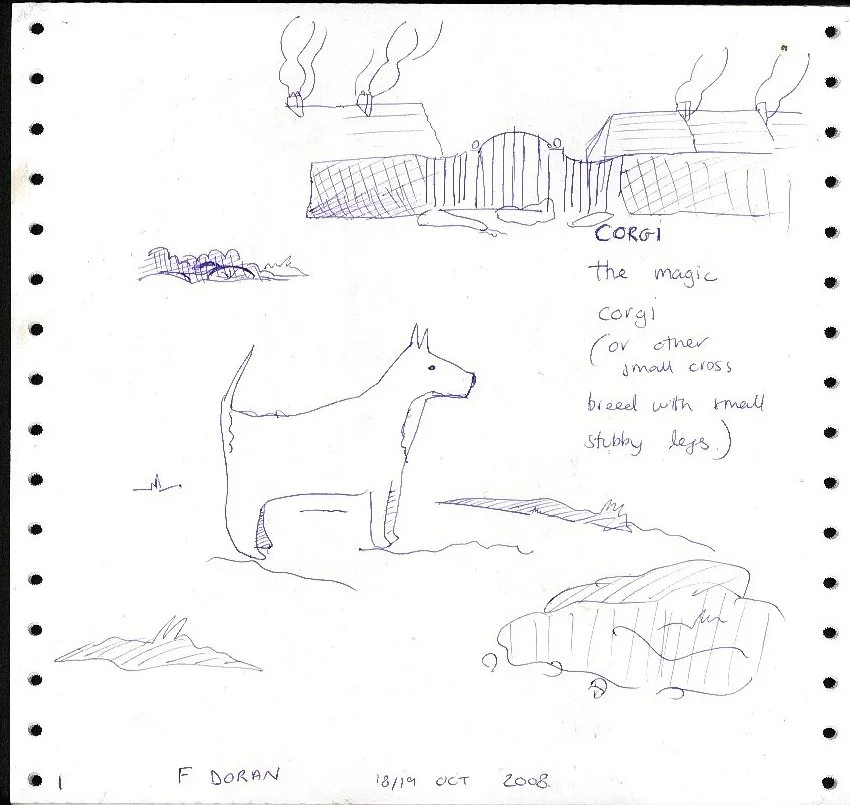 CORGI
the magic
corgi
(or other
small cross
breed with small
stubby legs.)
1
F DORAN
18/19 OCT 2008